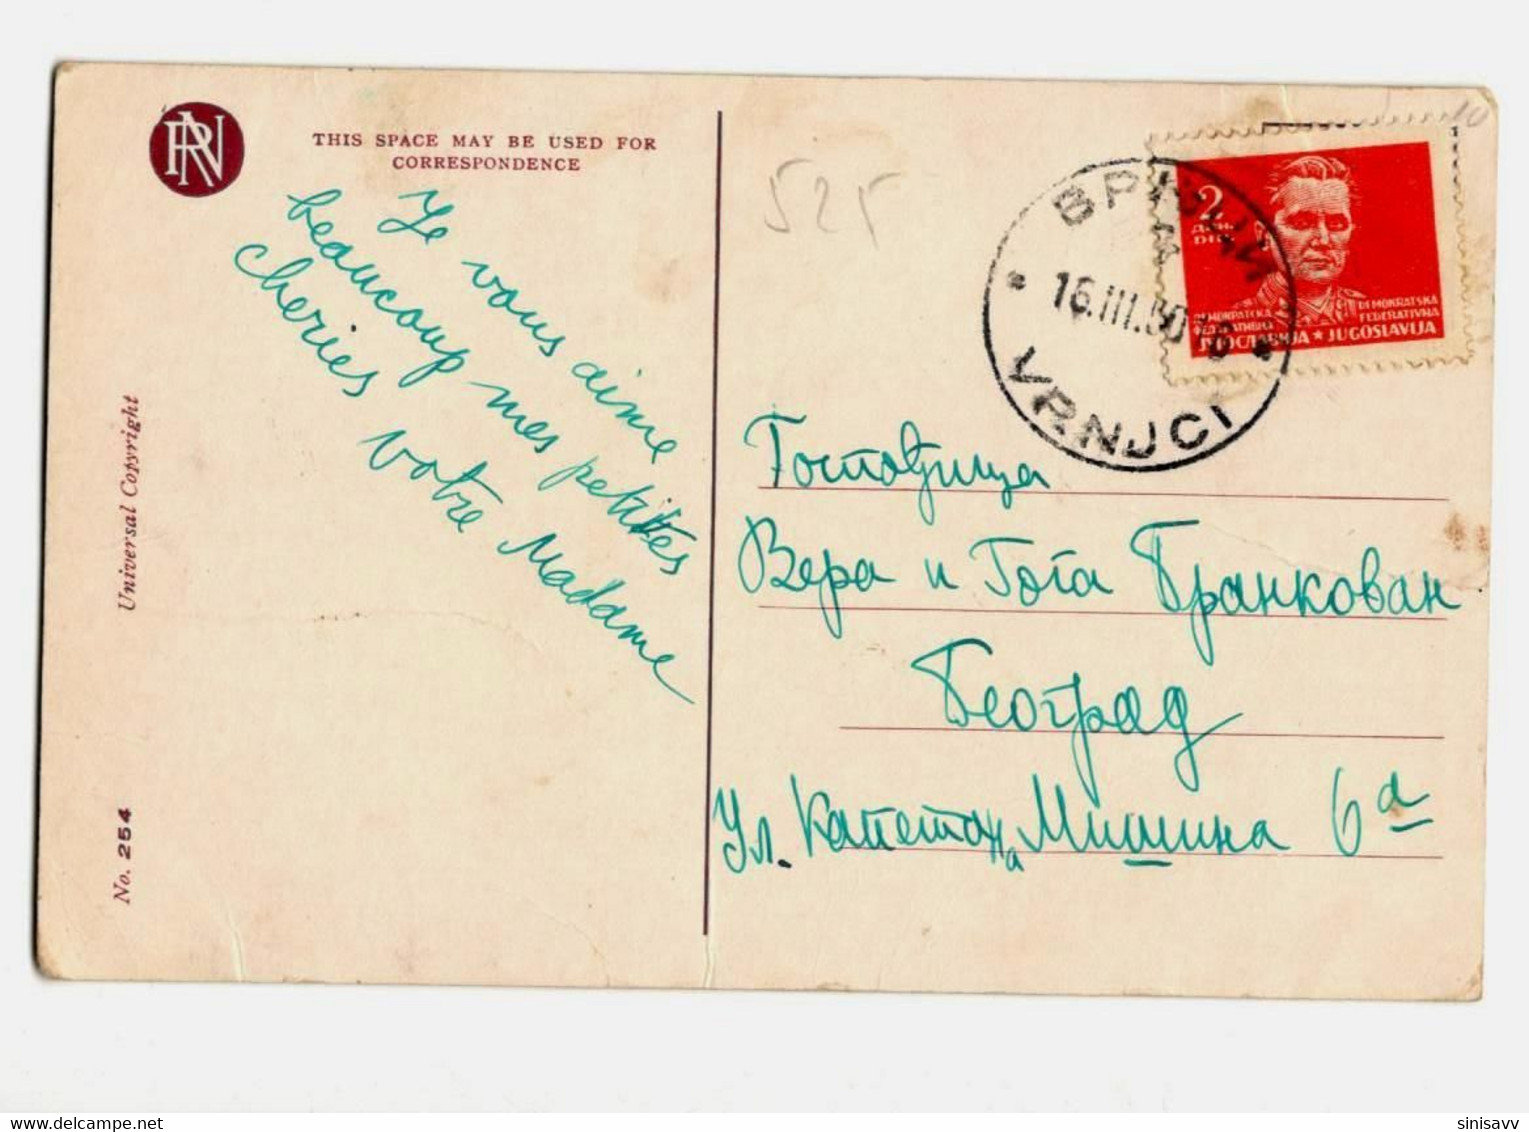 RN
THIS SPACE MAY BE USED FOR
CORRESPONDENCE
Je vous aime
beaucoup mes petites
cheries
votre Madame
Universal Copyright
No. 254
525
10
ВРЊЦИ
16.III.50
VRNJCI
2
ДИН.
DIN.
ДЕМОКРАТСКА
ФЕДЕРАТИВНА
ЈУГОСЛАВИЈА ★ JUGOSLAVIJA
DEMOKRATSKA
FEDERATIVNA
Господјица
Вера и Гога Бранкован
Београд
Ул. Капетана Мишина 6а
sinisavv